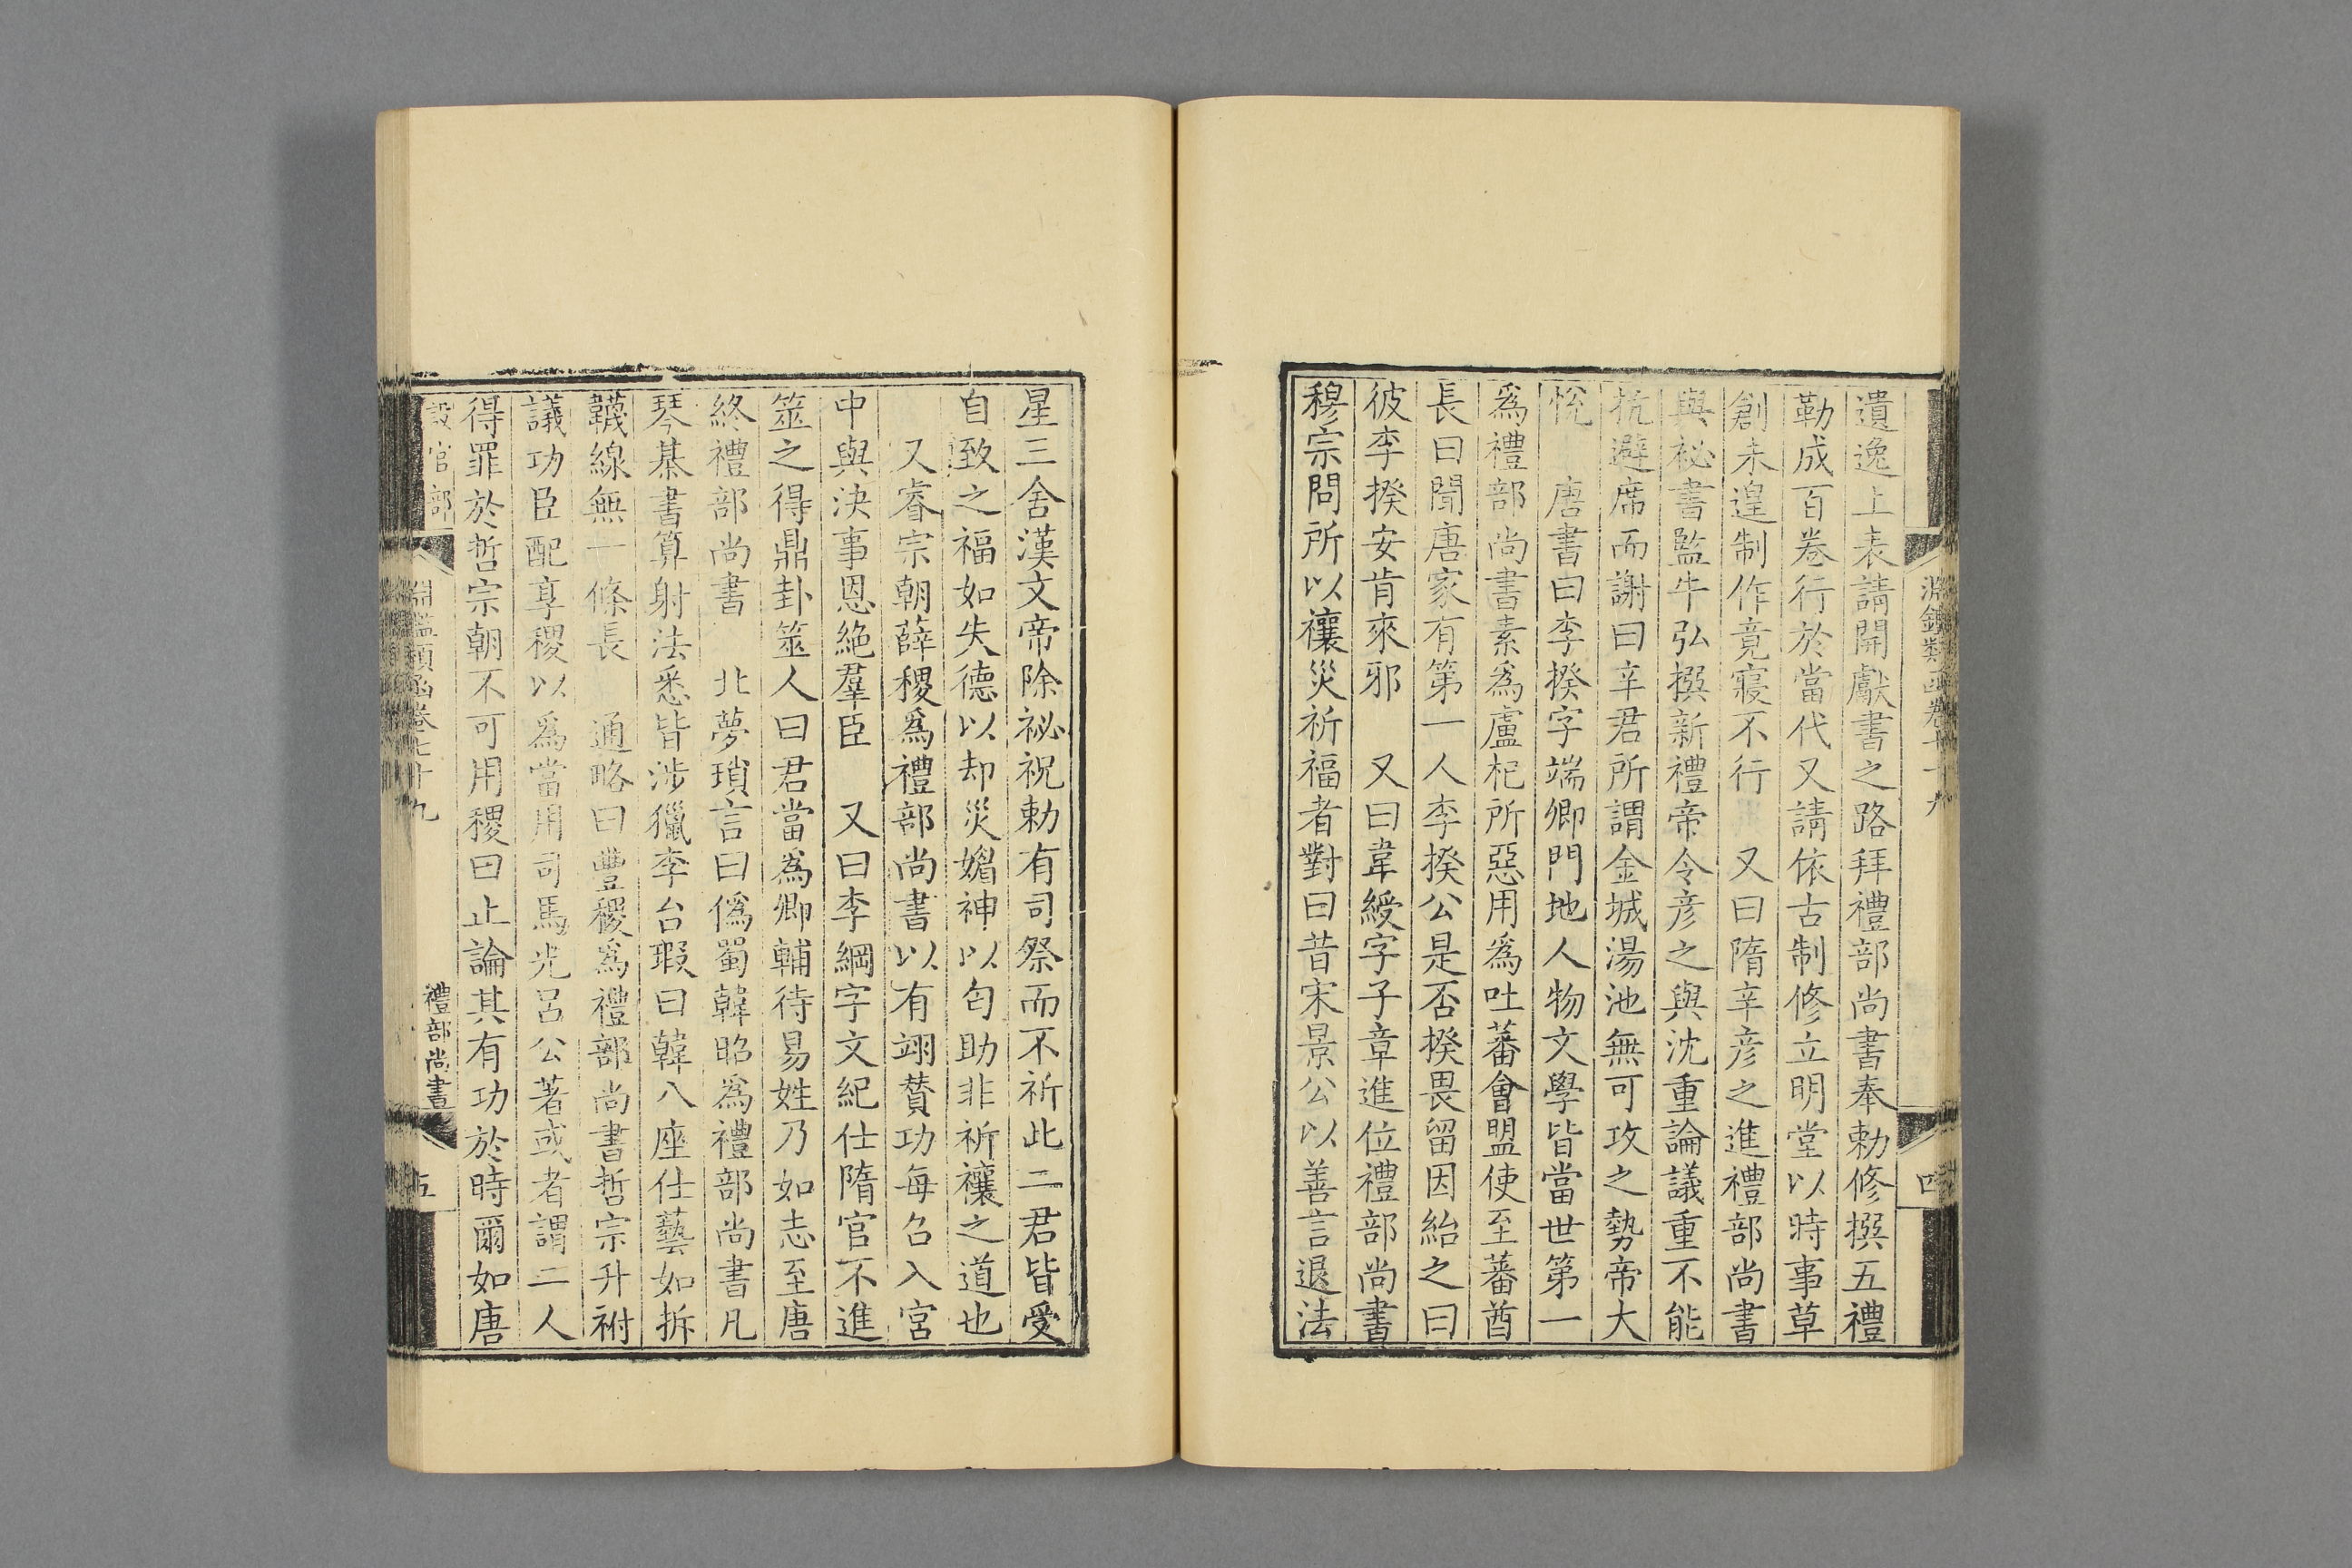 遺逸上表請開獻書之路拜禮部尚書奉勅修撰五禮
勒成百卷行於當代又請依古制修立明堂以時事草
創未遑制作竟寢不行　又曰隋辛彥之進禮部尚書
與祕書監牛弘撰新禮帝令彥之與沈重論議重不能
抗避席而謝曰辛君所謂金城湯池無可攻之勢帝大
悅　唐書曰李揆字端卿門地人物文學皆當世第一
爲禮部尚書素爲盧杞所惡用爲吐蕃會盟使至蕃酋
長曰聞唐家有第一人李揆公是否揆畏留因紿之曰
彼李揆安肯來邪　又曰韋綬字子章進位禮部尚書
穆宗問所以禳災祈福者對曰昔宋景公以善言退法
星三舍漢文帝除祕祝勅有司祭而不祈此二君皆受
自致之福如失德以却災媚神以匄助非祈禳之道也
又睿宗朝薛稷爲禮部尚書以有翊贊功每召入宮
中與決事恩絶羣臣　又曰李綱字文紀仕隋官不進
筮之得鼎卦筮人曰君當爲卿輔待易姓乃如志至唐
終禮部尚書　北夢瑣言曰僞蜀韓昭爲禮部尚書凡
琴棊書算射法悉皆涉獵李台瑕曰韓八座仕藝如拆
韈線無一條長　通略曰豐稷爲禮部尚書哲宗升祔
議功臣配享稷以爲當用司馬光呂公著或者謂二人
得罪於哲宗朝不可用稷曰止論其有功於時爾如唐
設官部
淵鑑類函卷七十九
禮部尚書
五